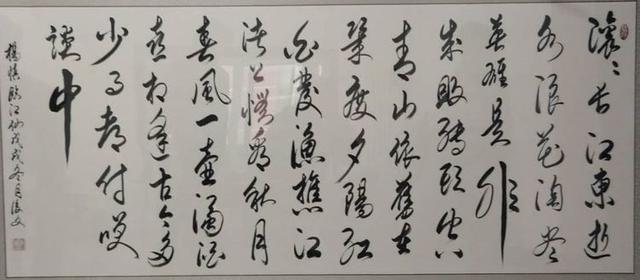 滚滚长江东逝
水浪花淘尽
英雄是非
成败转头空
青山依旧在
几度夕阳红
白发渔樵江
渚上惯看秋月
春风一壶浊酒
喜相逢古今多
少事都付笑
谈中
杨慎临江仙戊戌冬月